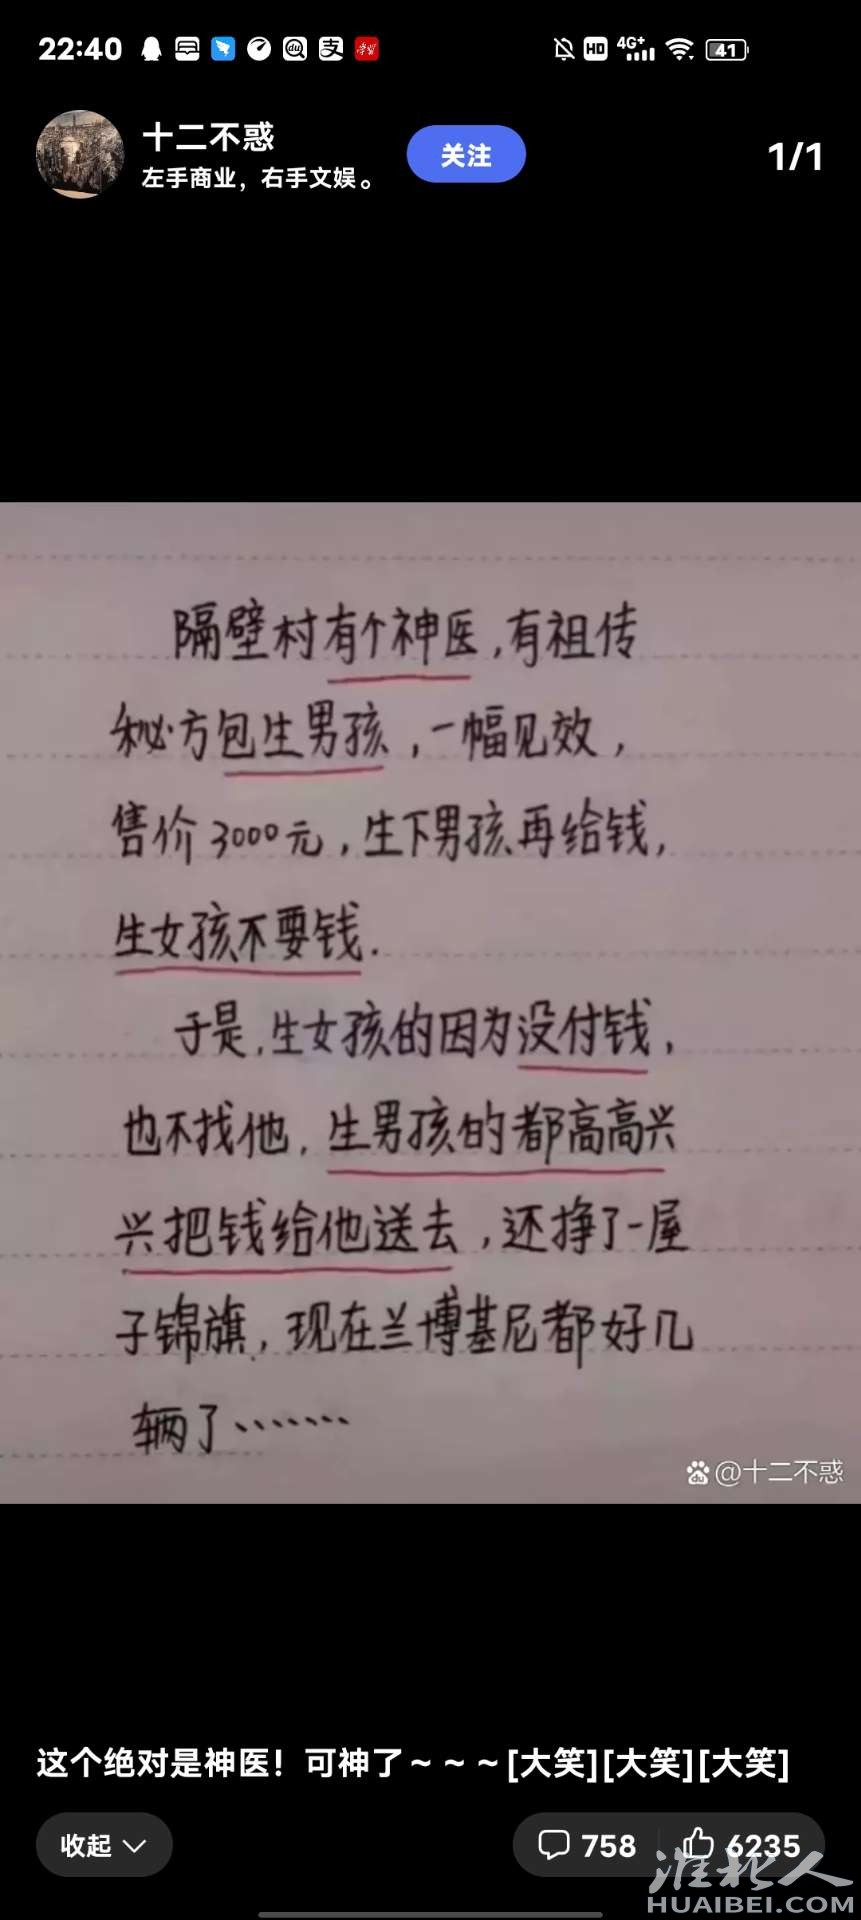 22:40
HD 4G+ 41
十二不惑
左手商业，右手文娱。
关注
1/1
隔壁村有个神医,有祖传
秘方包生男孩,一幅见效,
售价3000元,生下男孩再给钱,
生女孩不要钱.
于是,生女孩的因为没付钱,
也不找他,生男孩的都高高兴
兴把钱给他送去,还挣了一屋
子锦旗,现在兰博基尼都好几
辆了·······
du @十二不惑
这个绝对是神医！可神了～～～[大笑][大笑][大笑]
收起
758
6235
淮北人
HUAIBEI.COM